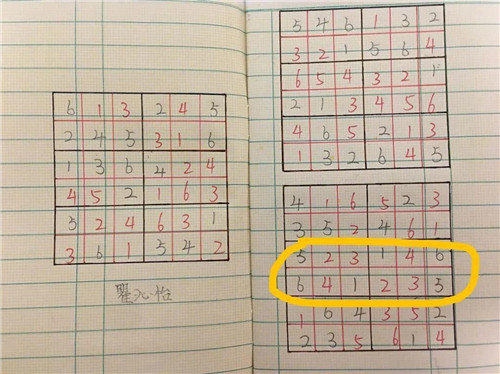 6 1 3 2 4 5
2 4 5 3 1 6
1 3 6 4 2 4
4 5 2 1 6 3
5 2 4 6 3 1
3 6 1 5 4 2
5 4 6 1 3 2
3 2 1 5 6 4
6 5 4 3 2 1
2 1 3 4 5 6
4 6 5 2 1 3
1 3 2 6 4 5
4 1 6 5 2 3
3 5 2 4 6 1
5 2 3 1 4 6
6 4 1 2 3 5
1 6 4 3 5 2
2 3 5 6 1 4